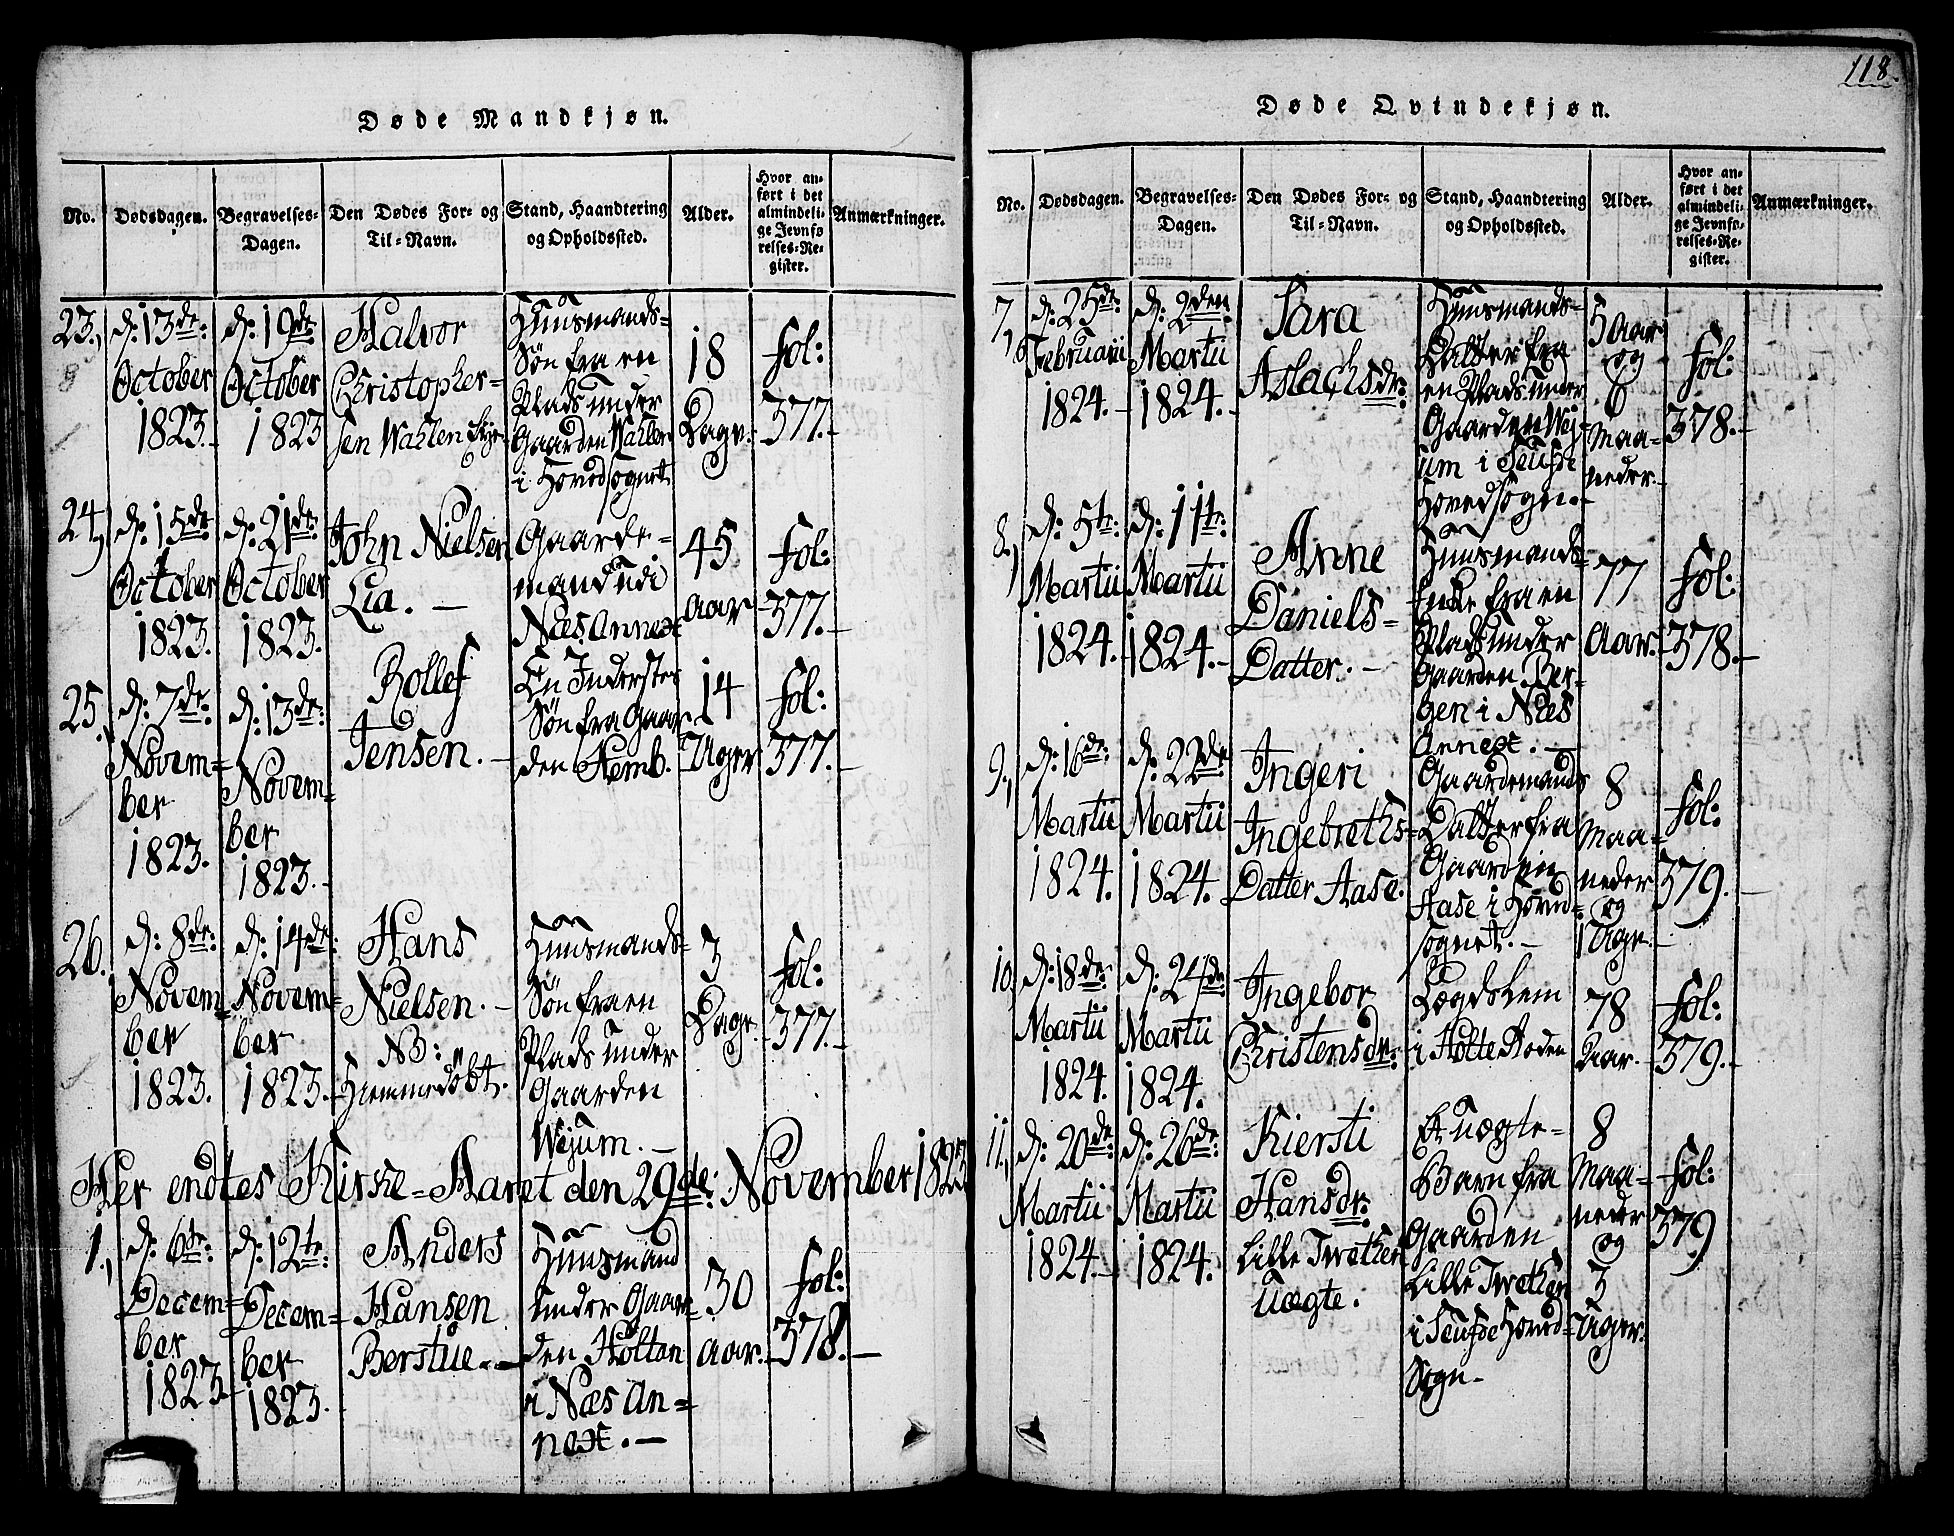 Døde Mandkjøn.
No.
Dødsdagen.
Begravelses-
Dagen.
Den Dødes For- og
Til-Navn.
Stand, Haandtering
og Opholdssted.
Alder.
Hvor an-
ført i det
almindeli-
ge Jevnfø
relses-Re-
gister.
Anmærkninger.
23.,
d: 13de:
October
1823.
d: 19de
October
1823
Halvor
Christopher-
sen Wahlen
Huusmands-
Søn fra en
Plads under
Gaarden Wahlen
i Hovedsognet
18
Dage.
fol:
377.-
24,
d: 15de
October
1823.
d: 21de:
October
1823.
John Nielsen
Lia. -
Gaarde-
mand udi
Næs Annext
45
Aar
fol:
377.-
25.,
d: 7de:
Novem-
ber
1823.
d: 13de:
Novem-
ber
1823.-
Rollef
Jensen. -
En Inderstes
Søn fra Gaar
den Kemb.
14
Uger
fol:
377.-
26.
d: 8de:
Novem
ber
1823.
d: 14de:
Novem-
ber
1823.
Hans
Nielsen. -
NB:
Hiemmedøbt.
Huusmands-
Søn fra en
Plads under
Gaarden
Wejum. -
3
Dage.
fol:
377.-
Her endtes Kirke-Aaret den 29de: November 1823
1.,
d: 6te:
Decem-
ber
1823.
d: 12te:
Decem-
ber
1823.
Anders
Hansen
Berstue. -
Huusmand
under Gaar-
den Holtan
i Næs An-
next. -
30
Aar.
fol:
378. -
118.
Døde Qvindekjøn.
No.
Dødsdagen.
Begravelses-
Dagen.
Den Dødes For- og
Til-Navn.
Stand, Haandtering
og Opholdssted.
Alder.
Hvor an-
ført i det
almindeli-
ge Jevnfø-
relses-Re-
gister.
Anmærkninger.
7,
d: 25de:
Februarii
1824.-
d: 2den
Martii
1824.-
Sara
Aslachsdr:
Huusmands-
Datter fra
en Plads under
Gaarden Wej-
um i Seufde
Hovedsogn.-
5 Aar
og
6
Maa-
neder.-
fol:
378.-
8.,
d: 5te:
Martii
1824.
d: 11te:
Martii
1824.-
Anne
Daniels-
Datter. -
Huusmands-
Enke fra en
Plads under
Gaarden Ber-
gen i Næs
Annext. -
77
Aar.
fol:
378.-
9.,
d: 16de:
Martii
1824.
d: 22de
Martii
1824.
Ingeri
Ingebreths-
Datter Aase.
Gaardemands
Datter fra
Gaarden
Aase i Hoved-
sognet. -
8
Maa-
neder
og
1 Uge.
fol:
379. -
10.
d: 18de
Martii
1824.
d: 24de
Martii
1824.
Ingebor
Christensdr:
Lægdslem
i Holte Roden
78
Aar.
fol:
379. -
11.,
d: 20de
Martii
1824.-
d: 26de
Martii
1824.
Kiersti
Hansdr:
Lille Twethen
Uægte.
Et uægte-
Barn fra
Gaarden
Lille Twethen
i Seufde Hoved-
Sogn -
8
Maa-
neder
og
3
Uger.
fol:
379